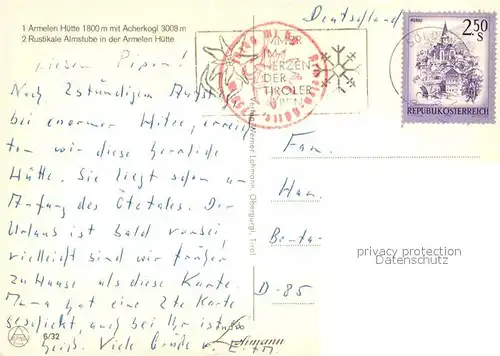 1 Armelen Hütte 1800 m mit Acherkogl 3008 m
2 Rustikale Almstube in der Armelen Hütte
Deutschland
IMMER
IM
HERZEN
DER
TIROLER
ALPEN
MURAU
2.50
S
SÖLDEN
REPUBLIK ÖSTERREICH
Armelen Hütte
Nach 2stündigem Aufstieg
bei enormer Hitze, erreich
ten wir diese herrliche
Hütte. Sie liegt schon am
Anfang des Ötztales. Der
Urlaub ist bald vorbei
vielleicht sind wir früher
zu Hause als diese Karte.
Mama hat eine 2te Karte
geschickt, auch bei Ihr ist es so
heiß. Viele Grüße v. E. + M.
Lohmann, Obergurgl, Tirol
Fam.
D-85
privacy protection
Datenschutz
6/32
Lohmann